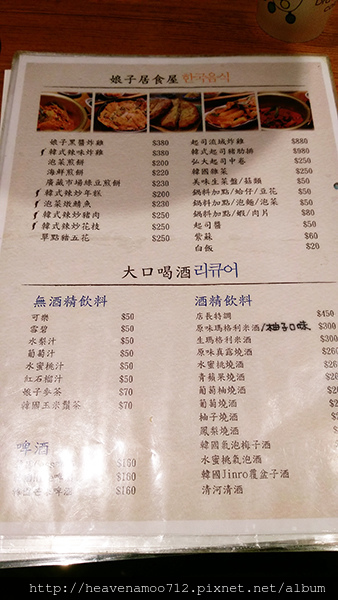 娘子居食屋 한국음식
娘子黑醬炸雞 $380
韓式辣味炸雞 $380
泡菜煎餅 $200
海鮮煎餅 $220
廣藏市場綠豆煎餅 $230
韓式辣炒年糕 $200
泡菜燉鯖魚 $230
韓式辣炒豬肉 $250
韓式辣炒花枝 $250
單點豬五花 $250
起司流域炸雞 $880
韓式起司豬肋排 $980
弘大起司中卷 $250
韓國雜菜 $250
美味生菜盤/菇類
鍋料加點/蛤仔/豆花 $50
鍋料加點/泡麵/泡菜 $50
鍋料加點/蝦/肉片 $80
起司醬 $50
紫蘇 $60
白飯 $20
大口喝酒 리큐어
無酒精飲料
可樂 $50
雪碧 $50
水梨汁 $50
葡萄汁 $50
水蜜桃汁 $50
紅石榴汁 $50
娘子麥茶 $70
韓國玉米鬚茶 $70
啤酒
$160
$160
$160
酒精飲料
店長特調 $450
原味瑪格利米酒/柚子口味 $300
生瑪格利米酒 $300
原味真露燒酒
水蜜桃燒酒
青蘋果燒酒
葡萄柚燒酒
葡萄燒酒
柚子燒酒
鳳梨燒酒
韓國氣泡梅子酒
水蜜桃氣泡酒
韓國Jinro覆盆子酒
清河清酒
http://heavenamoo712.pixnet.net/album